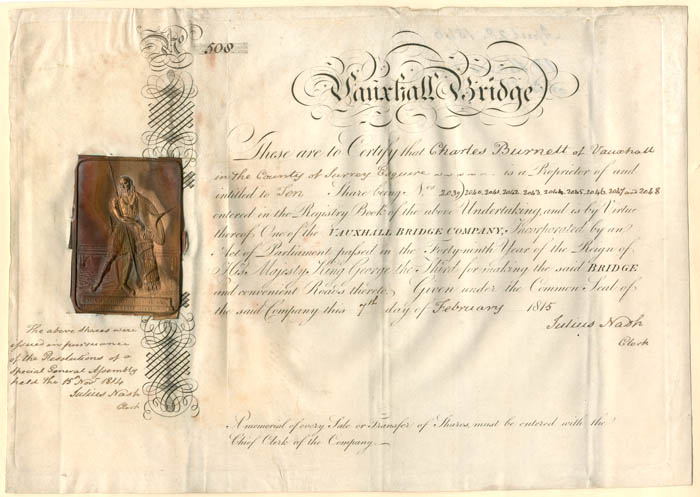 No 508.
Vauxhall Bridge
These are to Certify that Charles Burnett of Vauxhall
in the County of Surrey Esquire is a Proprietor of and
intitled to Ten Share being Nos 2039, 2040, 2041, 2042, 2043, 2044, 2045, 2046, 2047 and 2048
entered in the Registry Book of the above Undertaking, and is by Virtue
thereof One of the VAUXHALL BRIDGE COMPANY, Incorporated by an
Act of Parliament passed in the Forty-ninth Year of the Reign of
His Majesty King George the Third for making the said BRIDGE
and convenient Roads thereto. Given under the Common Seal of
the said Company this 7th day of February 1815
Julius Nash
Clerk
The above shares were
issued in pursuance
of the Resolutions of a
Special General Assembly
held the 15 Nov 1814
Julius Nash
Clerk
A memorial of every Sale or Transfer of Shares, must be entered with the
Chief Clerk of the Company.